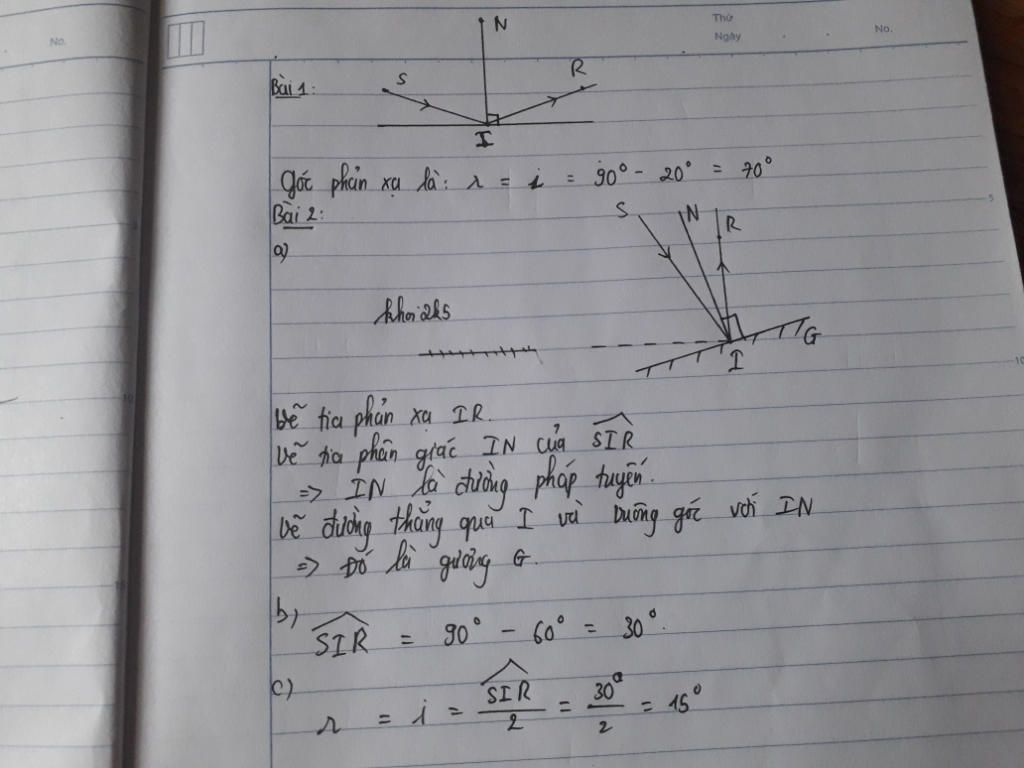 No.
Thứ
Ngày
No.
N
S
R
Bài 1:
I
Góc phản xạ là: r = i = 90° - 20° = 70°
Bài 2:
S N R
a)
khoi2k5
G
I
Vẽ tia phản xạ IR.
Vẽ tia phân giác IN của SIR
=> IN là đường pháp tuyến.
Vẽ đường thẳng qua I và vuông góc với IN
=> Đó là gương G.
b)
SIR = 90° - 60° = 30°.
c)
r = i = SIR/2 = 30°/2 = 15°
5
10